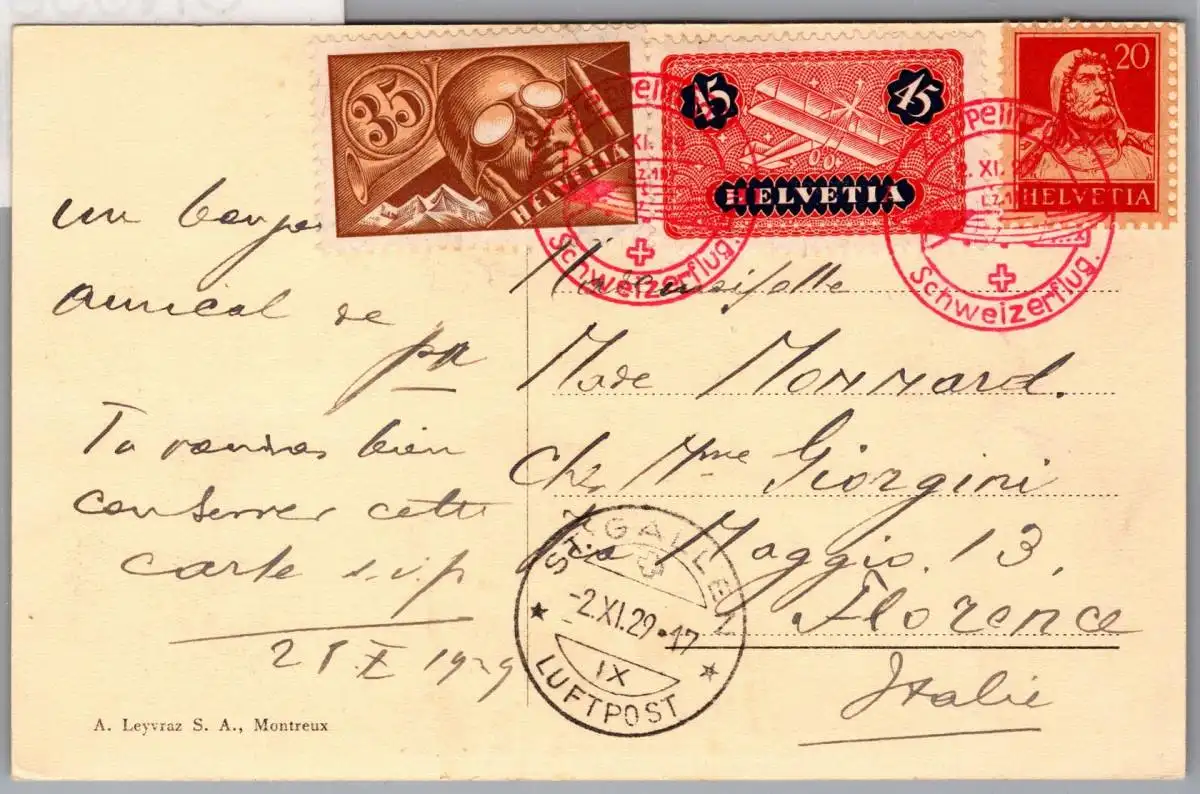 35
HELVETIA
45 45
HELVETIA
20
HELVETIA
XI.
Schweizerflug.
2. XI. 2
LZ.1
Schweizerflug.
un
amical de
Tu voudras bien
conserver cette
carte s.v.p
1929
Mademoiselle
Made Monnard.
Chez Mme Giorgini
Maggio. 13,
Florence
Italie
ST. GALLEN
-2.XI.29•17
IX
LUFTPOST
A. Leyvraz S. A., Montreux